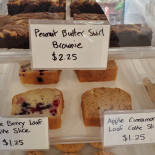 Peanut Butter Swirl
Brownie
$2.25
Berry Loaf
Slice
$1.25
Apple Cinnamon
Loaf Cake Slice
$1.25